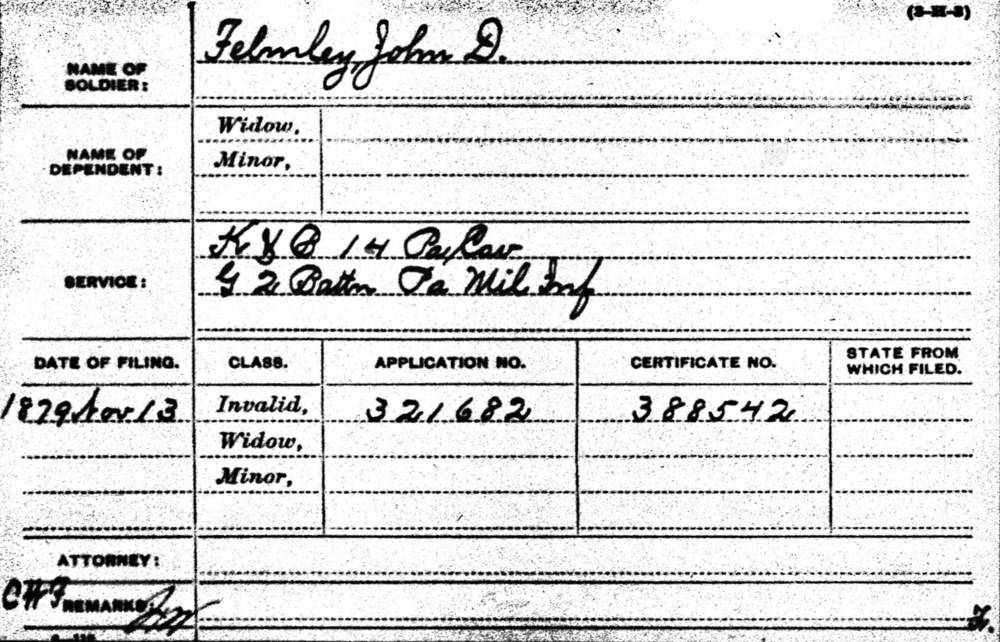 (3-H-3)
NAME OF SOLDIER:
Felmley, John D.
NAME OF DEPENDENT:
Widow,
Minor,
SERVICE:
K & B 14 Pa Cav
G 2 Battn Pa Mil Inf
DATE OF FILING. CLASS. APPLICATION NO. CERTIFICATE NO. STATE FROM WHICH FILED.
1879 Nov 13 Invalid, 321682 388542
Widow,
Minor,
ATTORNEY:
CWF REMARKS: